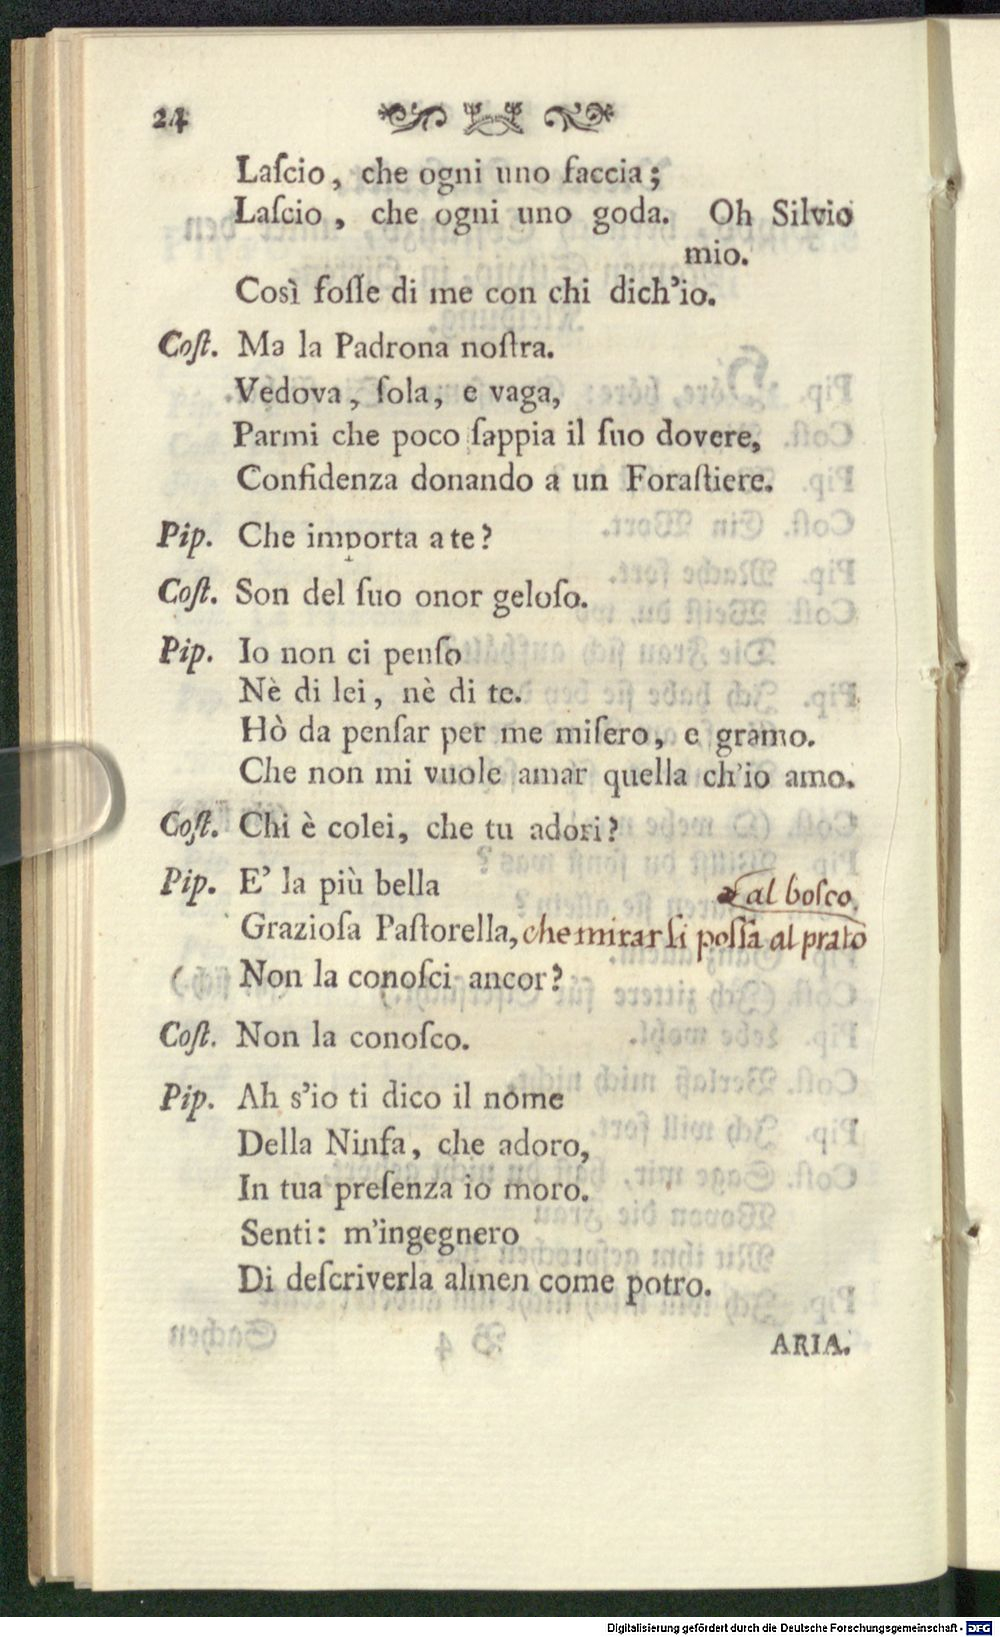 24
Laſcio, che ogni uno faccia;
Laſcio, che ogni uno goda. Oh Silvio
mio.
Così foſſe di me con chi dich'io.
Coſt. Ma la Padrona noſtra.
Vedova, ſola, e vaga,
Parmi che poco ſappia il ſuo dovere,
Confidenza donando a un Foraſtiere.
Pip. Che importa a te?
Coſt. Son del ſuo onor geloſo.
Pip. Io non ci penſo
Nè di lei, nè di te.
Hò da penſar per me miſero, e gramo.
Che non mi vuole amar quella ch'io amo.
Coſt. Chi è colei, che tu adori?
Pip. E' la più bella
al boſco.
Grazioſa Paſtorella, che mirar ſi poſſa al prato
Non la conoſci ancor?
Coſt. Non la conoſco.
Pip. Ah s'io ti dico il nome
Della Ninfa, che adoro,
In tua preſenza io moro.
Senti: m'ingegnero
Di deſcriverla almen come potro.
ARIA.
Digitalisierung gefördert durch die Deutsche Forschungsgemeinschaft - DFG